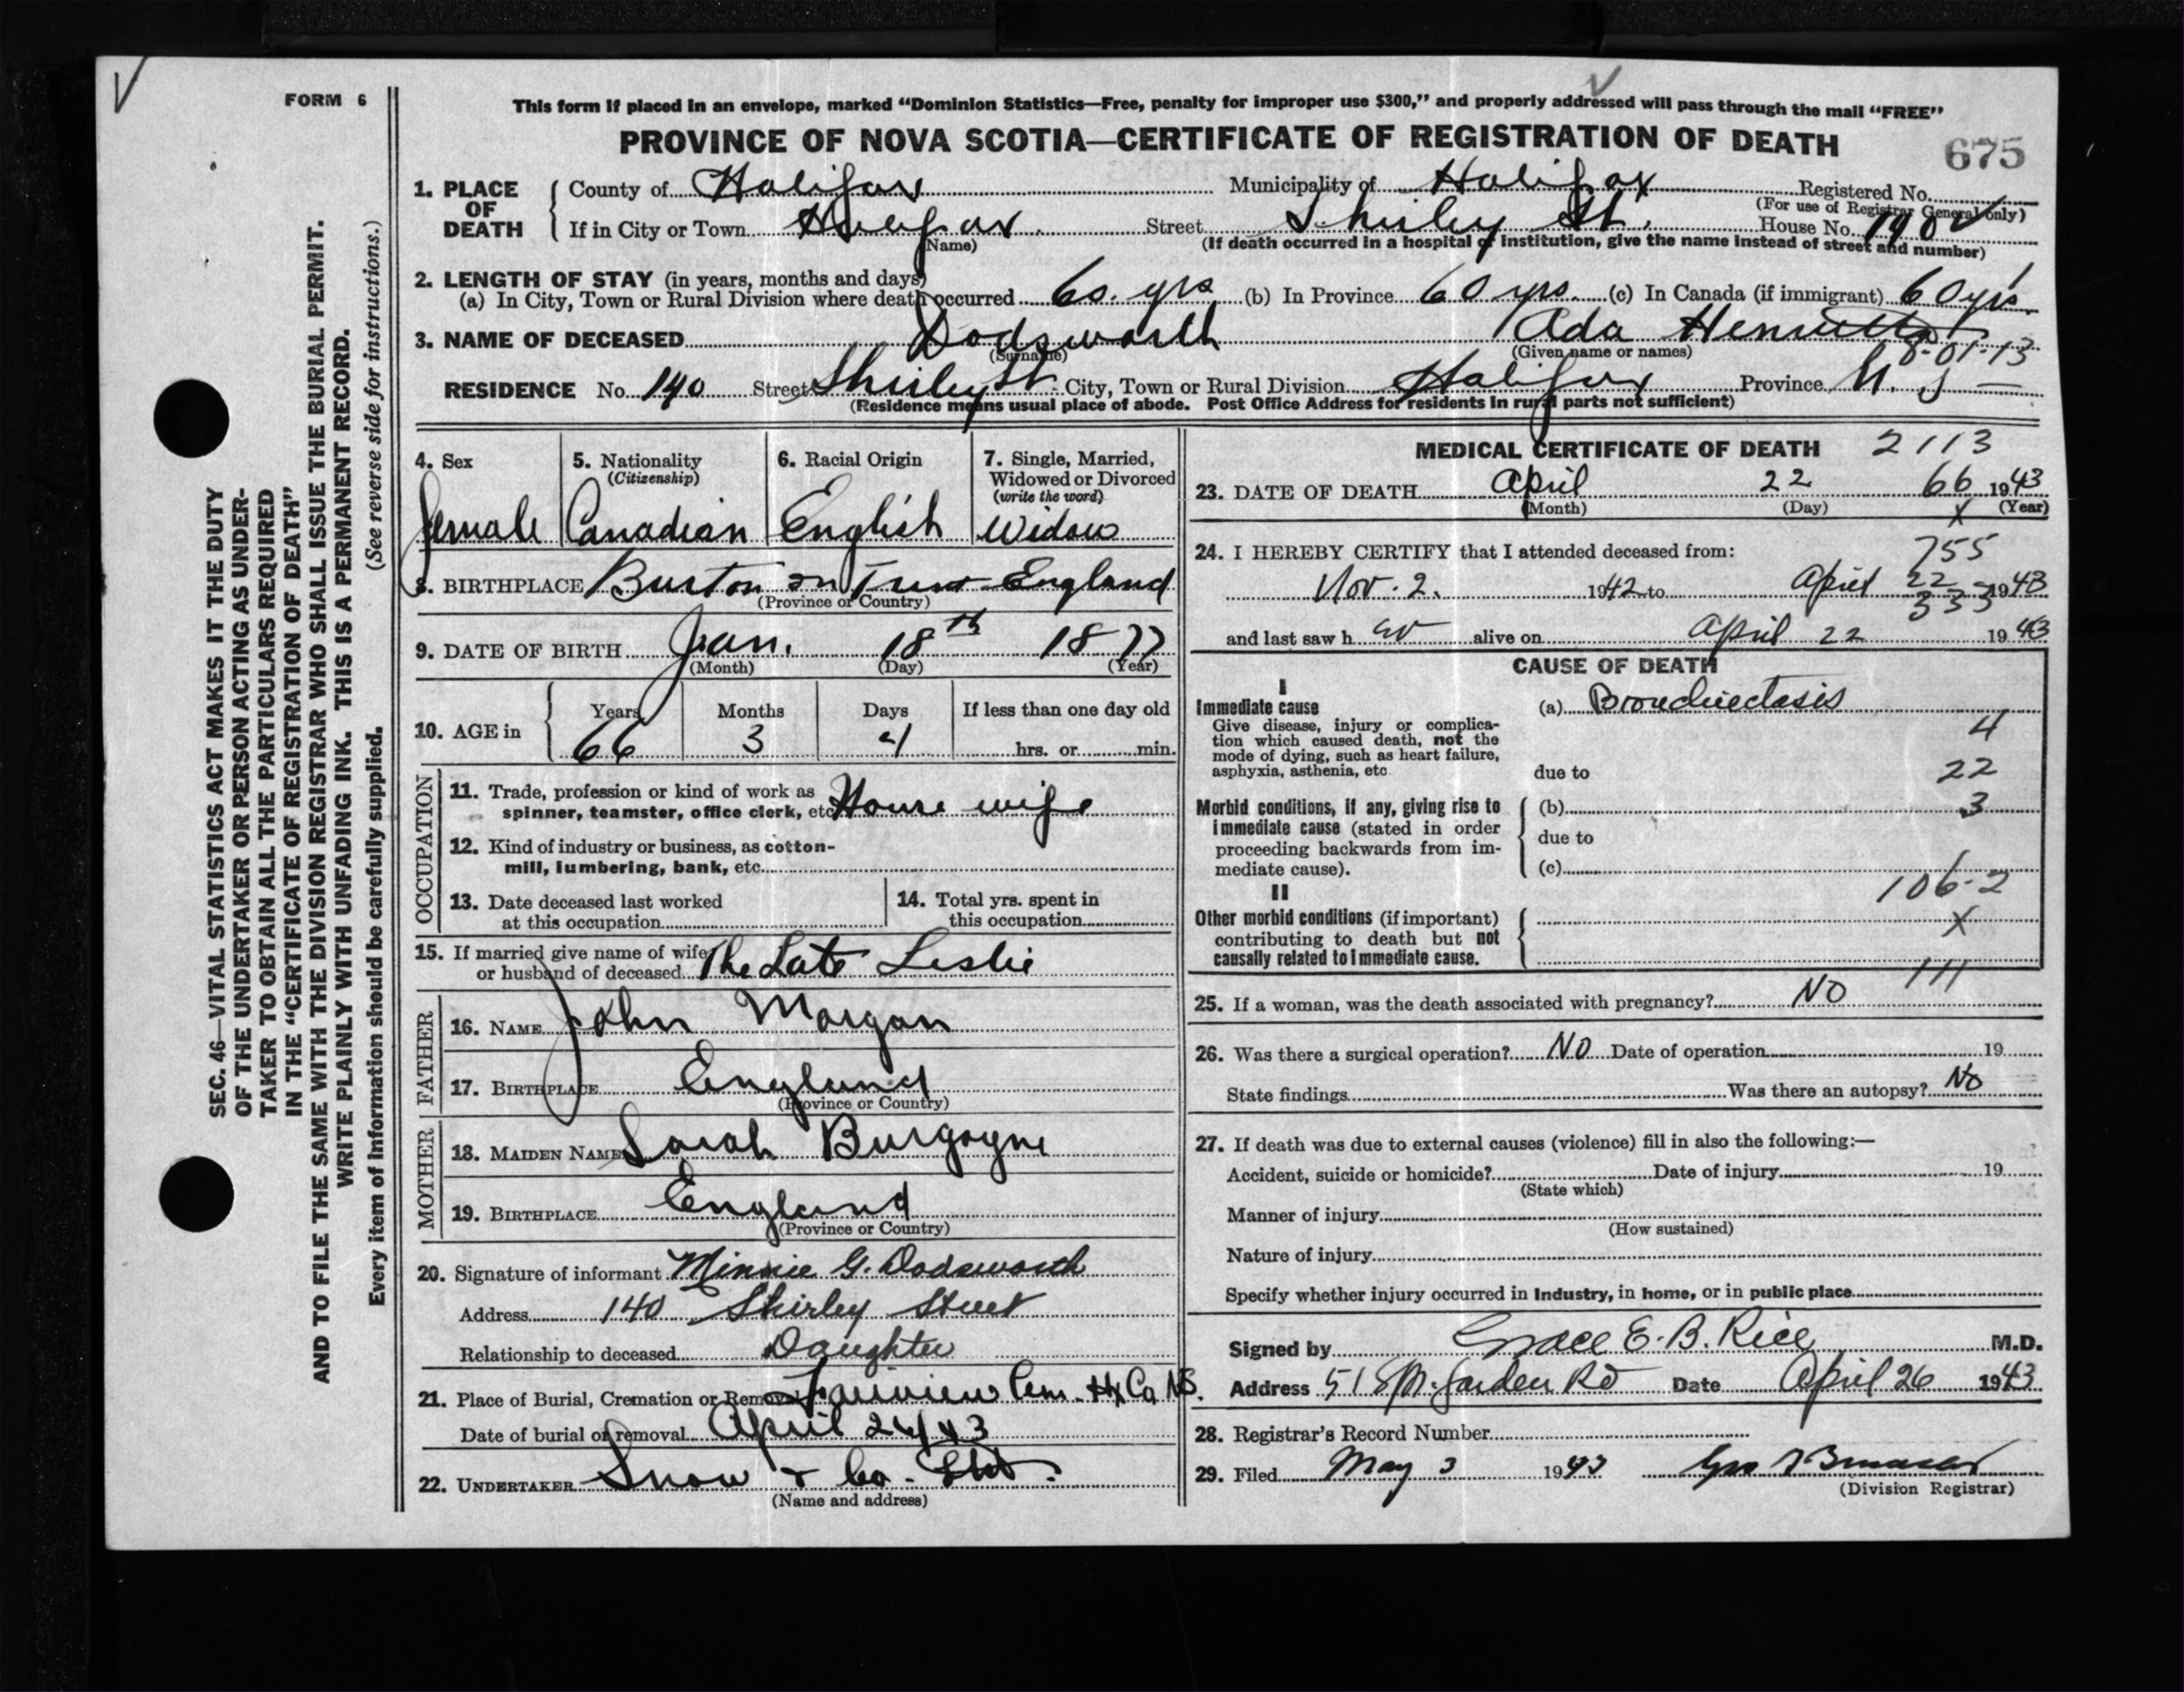 FORM 6
This form if placed in an envelope, marked “Dominion Statistics—Free, penalty for improper use $300,” and properly addressed will pass through the mail “FREE”
PROVINCE OF NOVA SCOTIA—CERTIFICATE OF REGISTRATION OF DEATH
675
1. PLACE OF DEATH
County of Halifax Municipality of Halifax Registered No.
(For use of Registrar General only)
If in City or Town Halifax Street Shirley St. House No. 140
(Name) (If death occurred in a hospital or institution, give the name instead of street and number)
2. LENGTH OF STAY (in years, months and days)
(a) In City, Town or Rural Division where death occurred 60 yrs (b) In Province 60 yrs. (c) In Canada (if immigrant) 60 yrs
3. NAME OF DECEASED Dodsworth Ada Henrietta
(Surname) (Given name or names)
8-01-13
RESIDENCE No. 140 Street Shirley St. City, Town or Rural Division Halifax Province N. S
(Residence means usual place of abode. Post Office Address for residents in rural parts not sufficient)
4. Sex
female
5. Nationality
(Citizenship)
Canadian
6. Racial Origin
English
7. Single, Married,
Widowed or Divorced
(write the word)
Widow
8. BIRTHPLACE Burton on Trent England
(Province or Country)
9. DATE OF BIRTH Jan. 18th 1877
(Month) (Day) (Year)
10. AGE in
Years Months Days If less than one day old
66 3 4 hrs. or min.
OCCUPATION
11. Trade, profession or kind of work as
spinner, teamster, office clerk, etc House wife
12. Kind of industry or business, as cotton-
mill, lumbering, bank, etc.
13. Date deceased last worked
at this occupation
14. Total yrs. spent in
this occupation
15. If married give name of wife
or husband of deceased The Late Leslie
FATHER
16. NAME John Morgan
17. BIRTHPLACE England
(Province or Country)
MOTHER
18. MAIDEN NAME Sarah Burgoyne
19. BIRTHPLACE England
(Province or Country)
20. Signature of informant Minnie G. Dodsworth
Address 140 Shirley Street
Relationship to deceased Daughter
21. Place of Burial, Cremation or Removal Fairview Cem. Hx Co NS.
Date of burial or removal April 24/43
22. UNDERTAKER Snow & Co. Ltd.
(Name and address)
MEDICAL CERTIFICATE OF DEATH 2113
23. DATE OF DEATH April 22 66 1943
(Month) (Day) X (Year)
24. I HEREBY CERTIFY that I attended deceased from:
755
Nov. 2. 1942 to April 22 1943
333
and last saw h er alive on April 22 1943
CAUSE OF DEATH
I
Immediate cause
Give disease, injury or complica-
tion which caused death, not the
mode of dying, such as heart failure,
asphyxia, asthenia, etc.
(a) Bronchiectasis
4
due to
22
Morbid conditions, if any, giving rise to
immediate cause (stated in order
proceeding backwards from im-
mediate cause).
(b)
3
due to
(c)
106-2
II
Other morbid conditions (if important)
contributing to death but not
causally related to immediate cause.
X
111
25. If a woman, was the death associated with pregnancy? NO
26. Was there a surgical operation? NO Date of operation 19
State findings Was there an autopsy? NO
27. If death was due to external causes (violence) fill in also the following:—
Accident, suicide or homicide? Date of injury 19
(State which)
Manner of injury
(How sustained)
Nature of injury
Specify whether injury occurred in Industry, in home, or in public place
Signed by Grace E. B. Rice M.D.
Address 51 Garden Rd Date April 26 1943
28. Registrar's Record Number
29. Filed May 3 1943
(Division Registrar)
SEC. 46—VITAL STATISTICS ACT MAKES IT THE DUTY
OF THE UNDERTAKER OR PERSON ACTING AS UNDER-
TAKER TO OBTAIN ALL THE PARTICULARS REQUIRED
IN THE “CERTIFICATE OF REGISTRATION OF DEATH”
AND TO FILE THE SAME WITH THE DIVISION REGISTRAR WHO SHALL ISSUE THE BURIAL PERMIT.
WRITE PLAINLY WITH UNFADING INK. THIS IS A PERMANENT RECORD.
Every item of information should be carefully supplied. (See reverse side for instructions.)